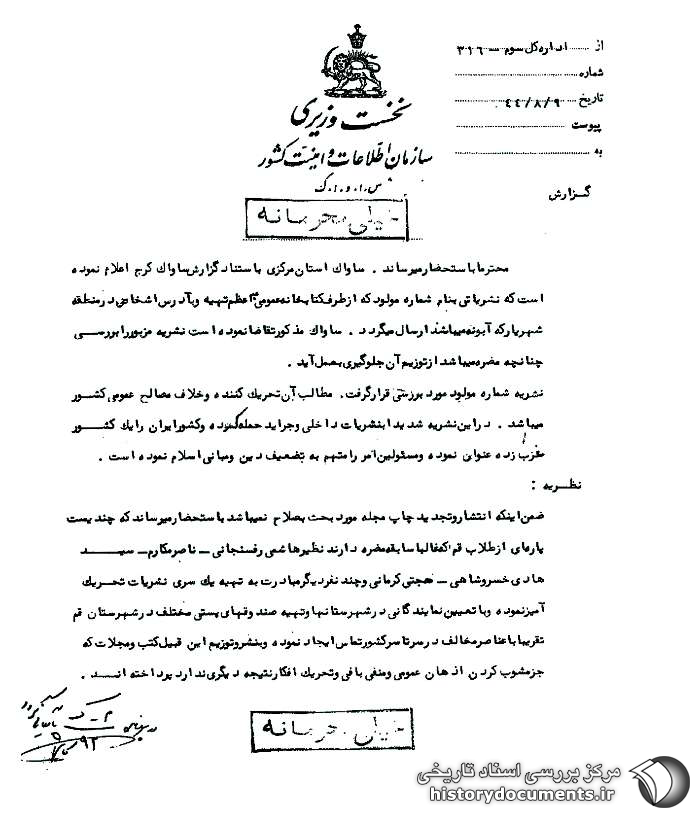 از اداره کل سوم – ۳۱۶
شماره
تاریخ ۴۴/۸/۹
پیوست
به
نخست وزیری
سازمان اطلاعات و امنیت کشور
س.ا.و.ا.ک
گزارش
خیلی محرمانه
محترما باستحضار میرساند . ساواک استان مرکزی باستناد گزارش ساواک کرج اعلام نموده
است که نشریاتی بنام شماره مولود که ازطرف کتابخانه عمومی اعظم تهیه وبآدرس اشخاص درمنطقه
شهریارکه آبونه میباشد ارسال میگردد . ساواک مذکورتقاضا نموده است نشریه مزبوررا بررسی
چنانچه مضره میباشد ازتوزیع آن جلوگیری بعمل آید .
نشریه شماره مولود مورد بررسی قرارگرفت . مطالب آن تحریک کننده وخلاف مصالح عمومی کشور
میباشد . دراین نشریه شدیدا بنشریات داخلی وجراید حمله نموده وکشورایران رایک کشور
غرب زده عنوان نموده ومسئولین امر رامتهم به تضعیف دین ومبانی اسلام نموده است .
نظریه :
ضمن اینکه انتشاروتجدید چاپ مجله مورد بحث بصلاح نمیباشد باستحضار میرساند که چندیست
پاره‌ای ازطلاب قم که غالبا سابقه مضره دارند نظیرهاشمی رفسنجانی – ناصرمکارم – سید
هادی خسروشاهی – حجتی کرمانی وچند نفردیگرمبادرت به تهیه یک سری نشریات تحریک
آمیزنموده وبا تعیین نمایندگانی درشهرستانها وتهیه صندوقهای پستی مختلف درشهرستان قم
تقریبا باعناصرمخالف درسرتاسرکشورتماس ایجاد نموده وبنشروتوزیع این قبیل کتب ومجلات که
جزمشوب کردن اذهان عمومی ومنفی بافی وتحریک افکارنتیجه دیگری ندارد پرداخته‌اند .
خیلی محرمانه
مرکز بررسی اسناد تاریخی
historydocuments.ir